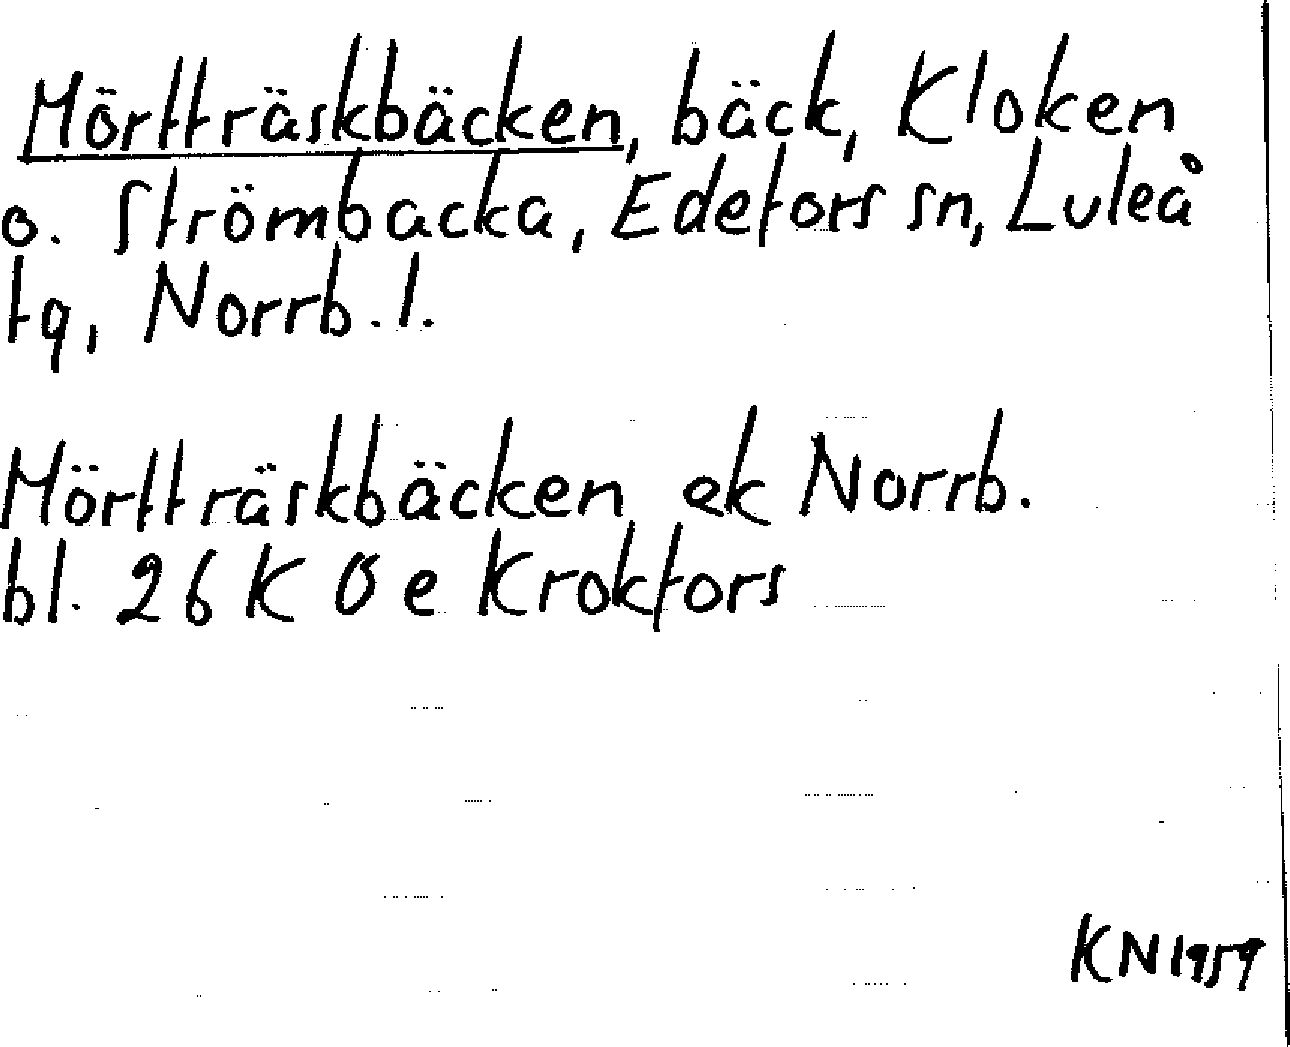 Mörtträskbäcken, bäck, Kloken
o. Strömbacka, Edefors sn, Luleå
tg, Norrb. l.
Mörtträskbäcken ek Norrb.
bl. 26 K Ö e Krokfors
KN 1959